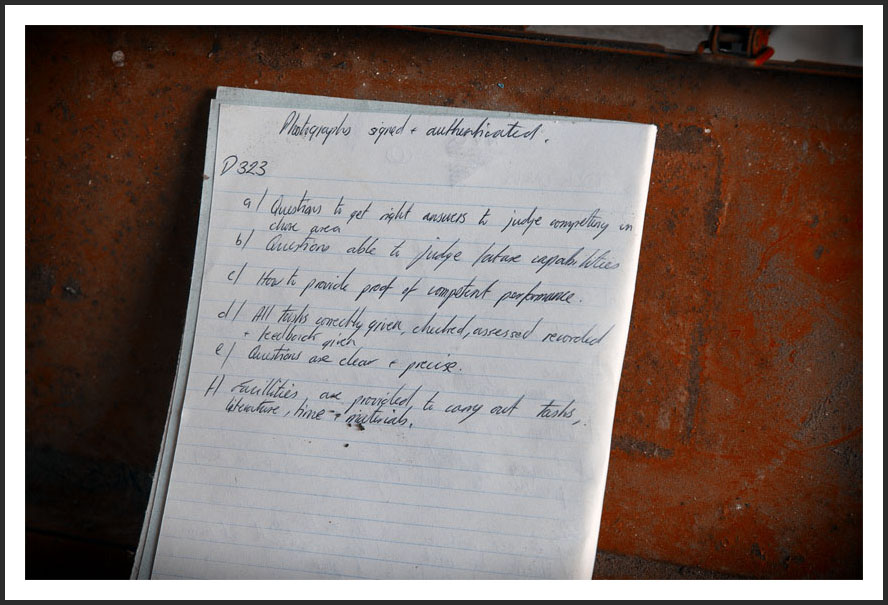 Photographs signed + authenticated.
D323
a/ Questions to get right answers to judge competency in
chose area
b/ Questions able to judge future capabilities
c/ How to provide proof of competent performance.
d/ All tasks correctly given, checked, assessed recorded
+ feedback given
e/ Questions are clear + precise.
f/ Facillities are provided to carry out tasks,
literature, time + materials.